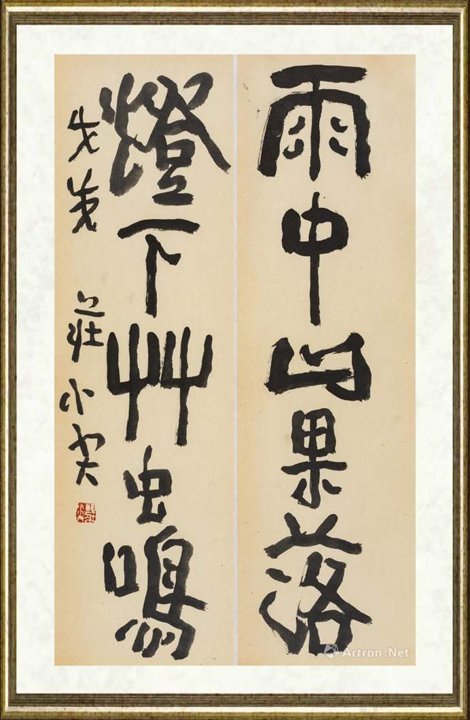 雨中山果落
燈下艸虫鳴
莊小尖
Artron.Net